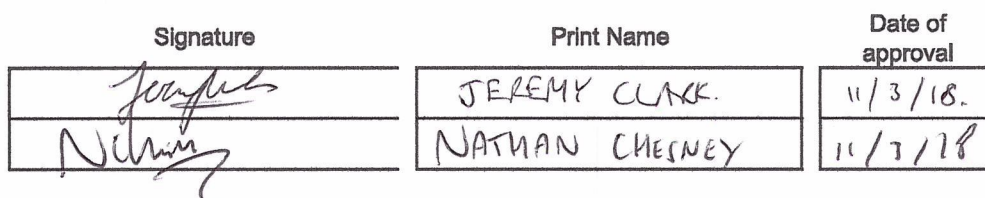 Signature Print Name Date of approval
JEREMY CLARK. 11/3/18.
NATHAN CHESNEY 11/3/18